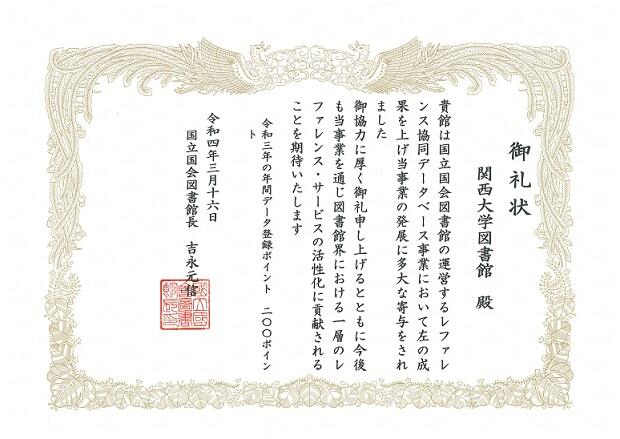 御礼状
関西大学図書館　殿
貴館は国立国会図書館の運営するレファレ
ンス協同データベース事業において左の成
果を上げ当事業の発展に多大な寄与をされ
ました
御協力に厚く御礼申し上げるとともに今後
も当事業を通じ図書館界における一層のレ
ファレンス・サービスの活性化に貢献される
ことを期待いたします
令和三年の年間データ登録ポイント　二〇〇ポイン
ト
令和四年三月十六日
国立国会図書館長　吉永元信